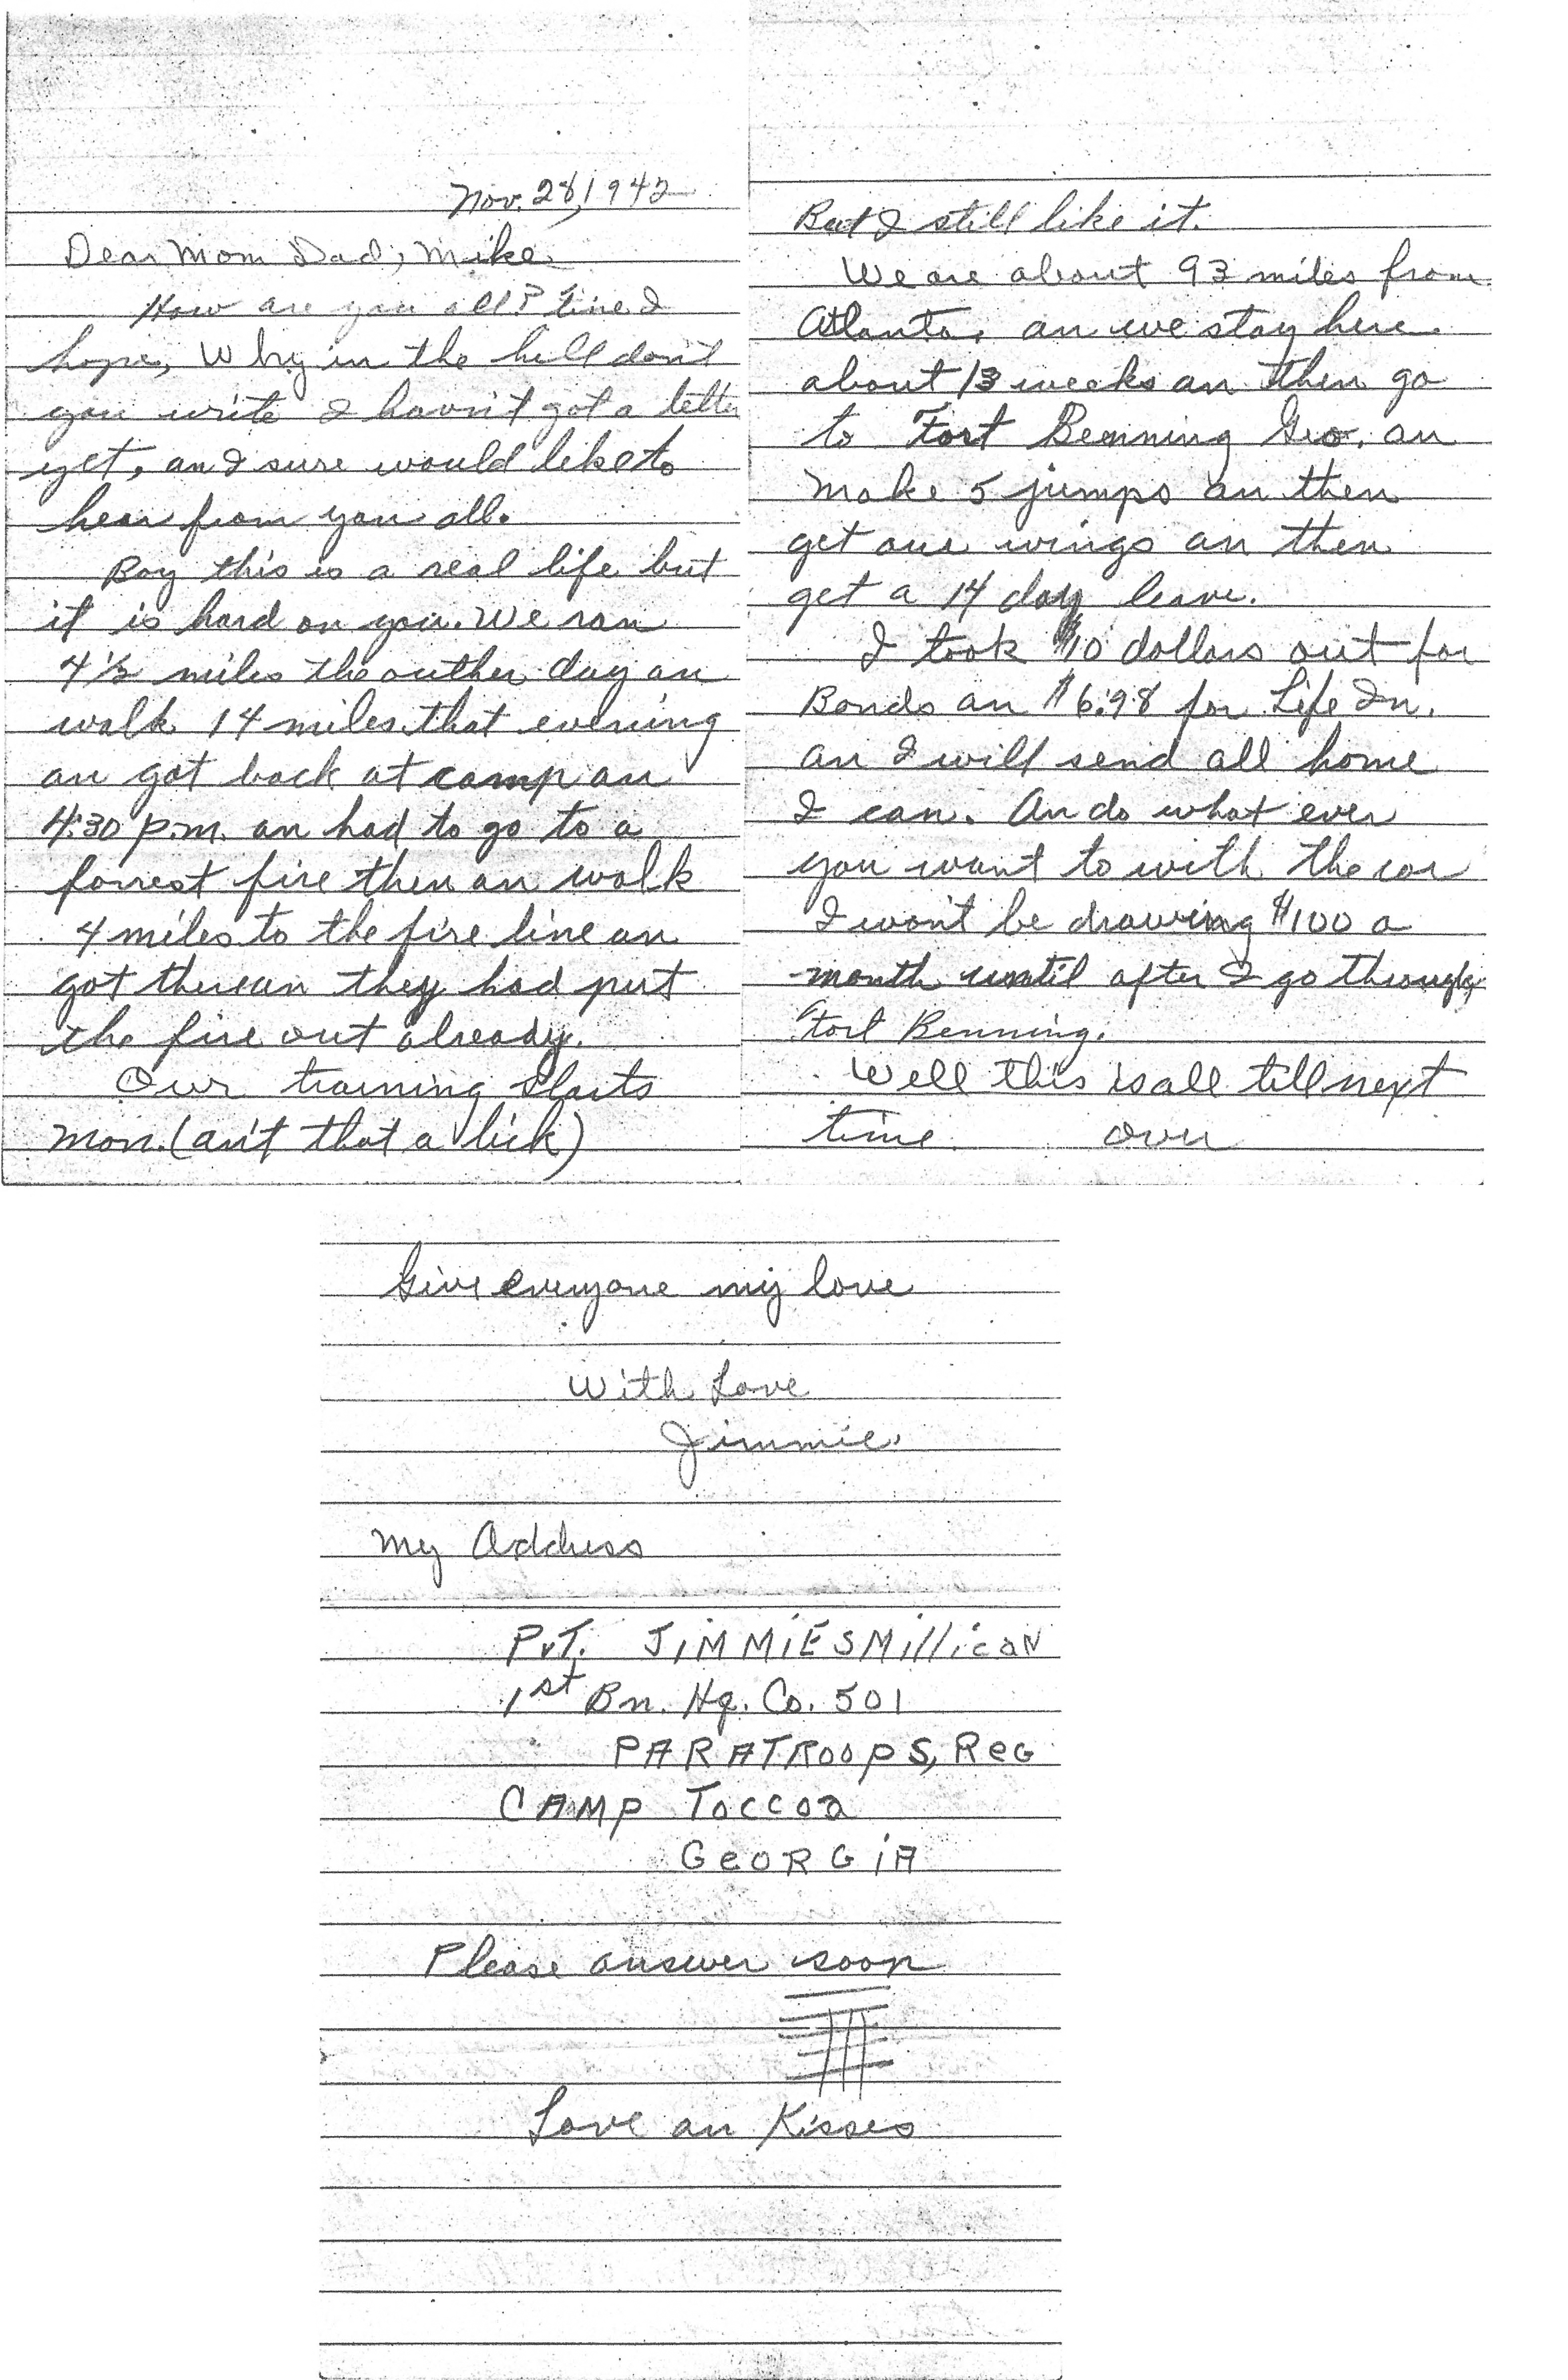 Nov. 28, 1942
Dear Mom Dad, Mike
How are you all? Fine I
hope, Why in the hell don't
you write I havn't got a letter
yet, an I sure would like to
hear from you all.
Boy this is a real life but
it is hard on you. We ran
4½ miles the outher day an
walk 14 miles that evening
an got back at camp an
4:30 p.m. an had to go to a
forrest fire then an walk
4 miles to the fire line an
got there an they had put
the fire out already.
Our training starts
mon. (ain't that a lick)
But I still like it.
We are about 93 miles from
Atlanta, an we stay here
about 13 weeks an then go
to Fort Benning Geo. an
make 5 jumps an then
get our wings an then
get a 14 day leave.
I took $10 dollars out for
Bonds an $6.98 for Life In.
an I will send all home
I can. An do what ever
you want to with the car
I won't be drawing $100 a
month until after I go through
Fort Benning.
Well this is all till next
time over
Give everyone my love
With Love
Jimmie
My Address
Pvt. JiMMiE S Millican
1st Bn. Hq. Co. 501
PARATROOPS, Reg
CAMP Toccoa
GeORGiA
Please answer soon
Love an Kisses